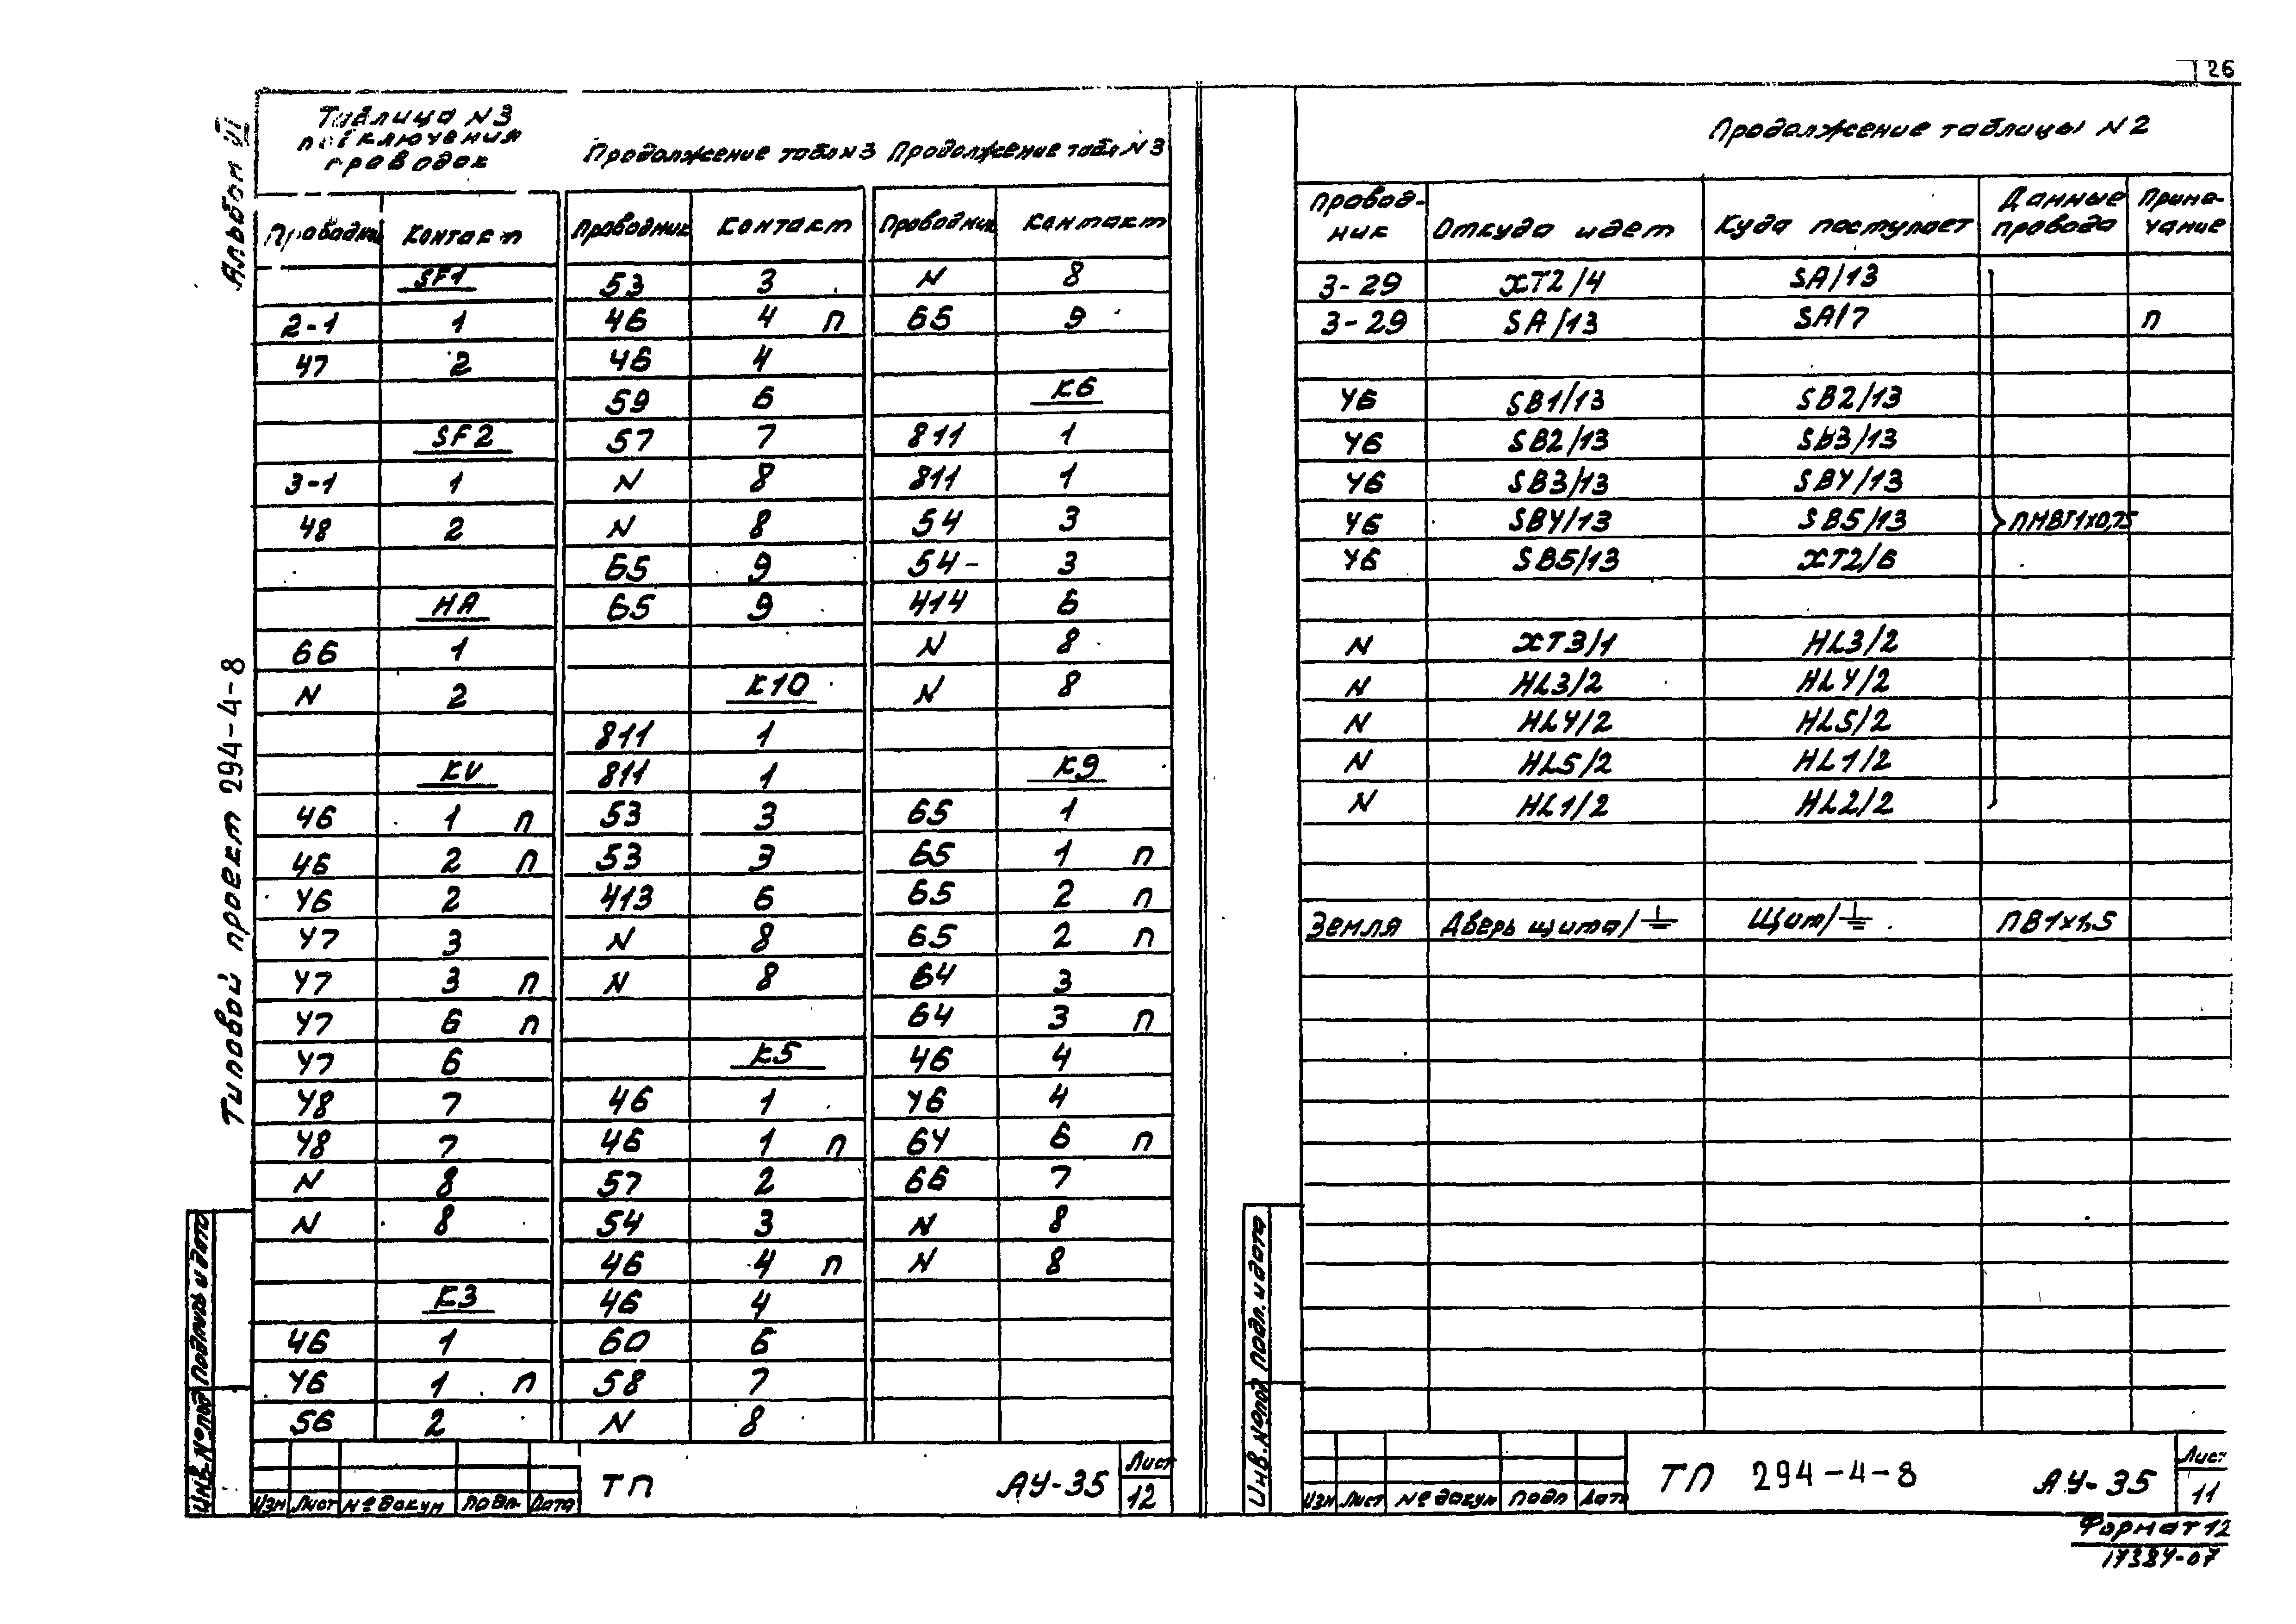 26
Альбом VI
Типовой проект 294-4-8
Таблица N3
подключения
проводок
Продолжение табл N3
Продолжение табл N3
Проводник Контакт Проводник Контакт Проводник Контакт
SF1 53 3 N 8
2-1 1 46 4 п 65 9
47 2 46 4
59 6 К6
SF2 57 7 811 1
3-1 1 N 8 811 1
48 2 N 8 54 3
65 9 54 3
НА 65 9 414 6
66 1 N 8
N 2 К10 N 8
811 1
KV 811 1 К9
46 1 п 53 3 65 1
46 2 п 53 3 65 1 п
46 2 413 6 65 2 п
47 3 N 8 65 2 п
47 3 п N 8 64 3
47 6 п 64 3 п
47 6 К5 46 4
48 7 46 1 46 4
48 7 46 1 п 64 6 п
N 8 57 2 66 7
N 8 54 3 N 8
46 4 п N 8
К3 46 4
46 1 60 6
46 1 п 58 7
56 2 N 8
Инв.№подл Подпись и дата
Изм Лист № докум Подп. Дата
ТП АУ-35 Лист 12
Продолжение таблицы N2
Провод-
ник Откуда идет Куда поступает Данные
провода Приме-
чание
3-29 XT2/4 SA/13
3-29 SA/13 SA/7 п
46 SB1/13 SB2/13
46 SB2/13 SB3/13
46 SB3/13 SB4/13
46 SB4/13 SB5/13 ПМВГ1х0,75
46 SB5/13 XT2/6
N XT3/1 HL3/2
N HL3/2 HL4/2
N HL4/2 HL5/2
N HL5/2 HL1/2
N HL1/2 HL2/2
Земля Дверь щита/⏚ Щит/⏚ ПВ1х1,5
Инв.№подл Подп. и дата
Изм Лист № докум Подп Дата
ТП 294-4-8 АУ-35 Лист 11
Формат 12
17384-07